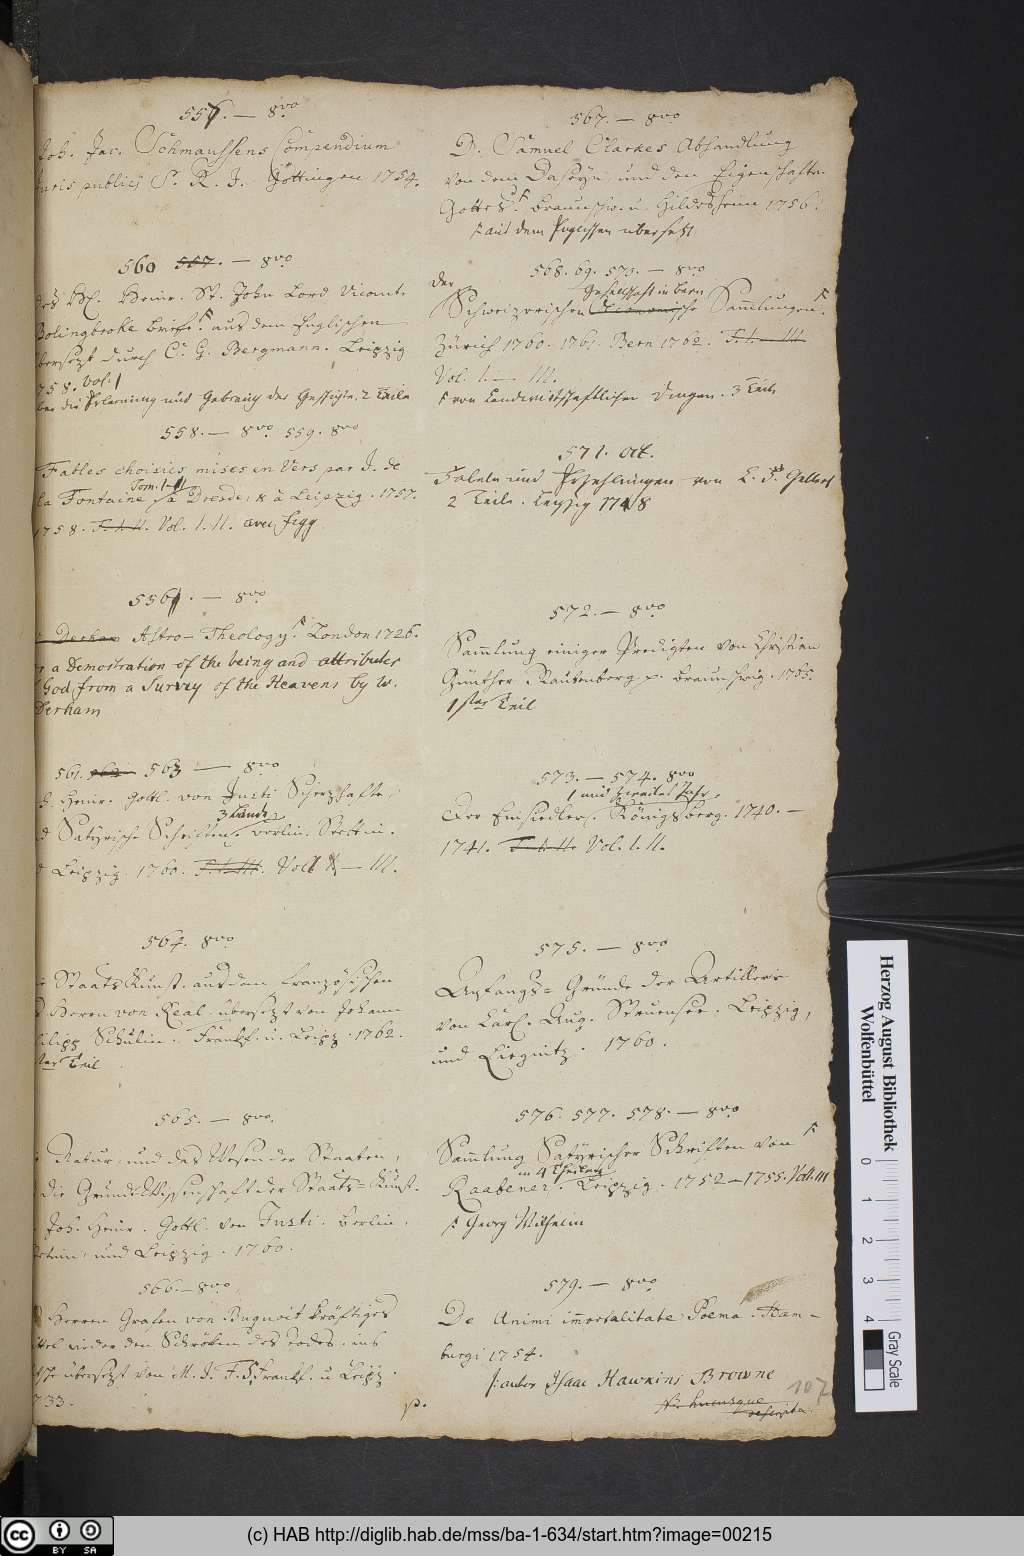 557. — 8vo
Joh. Jac. Schmaussens Compendium
juris publici S. R. I. Göttingen 1754.
560 557. — 8vo
des H. Heinr. St. John Lord Vicomt.
Bolingbroke Briefe aus dem Englischen
übersezt durch C. G. Bergmann. Leipzig
1758. Vol. I
über die Erlernung und Gebrauch der Geschichte. 2 Teile
558. — 8vo 559. 8vo
Fables choisies mises en Vers par J. de
la Fontaine Tom. I-II à Dresde, & à Leipzig. 1757.
1758. T. I. II. Vol. I. II. avec figg
5561. — 8vo
Derham Astro-Theology London 1726.
or a Demostration of the being and attributes
of God from a Survey of the Heavens by W.
Derham
561. 562 563 — 8vo
Joh. Heinr. Gottl. von Justi Scherzhafte,
und Satyrische Schriften, 3 Bände Berlin. Stettin.
und Leipzig. 1760. T. I. III. Vol I — III.
564. 8vo
Die Staats Kunst. aus dem Französischen
des Herren von Real. übersezt von Johann
Philipp Schulin. Frankf. u. Leipz. 1762.
Teil
565. — 8vo.
Natur und das Wesen der Staaten,
die Grund-Wissenschaft der Staats-Kunst.
Joh. Heinr. Gottl. von Justi. Berlin,
Stettin, und Leipzig. 1760.
566. — 8vo
des Herren Grafen von Buquoit kräftiges
Mittel wider den Schröken des Todes. ins
übersezt von M. J. F. S. Frankf. u Leipz.
1733.
567. — 8vo
D. Samuel Clarkes Abhandlung
von dem Daseyn, und den Eigenschaften
Gottes. Braunschw. u. Hildesheim 1756.
aus dem Englischen übersetzt
568. 69. 570. — 8vo
der Gesellschaft in Bern
Schweizerischen Oeconomische Sammlungen
Zürich 1760. 1761. Bern 1762. T. I. — III.
Vol. I. — III.
von Landwirthschaftlichen Dingen. 3 Teile
571. oct.
Fabeln und Erzehlungen von C. F. Gellert
2 Teile. Leipzig 1748
572. — 8vo
Sammlung einiger Predigten von Christian
Günther Rautenberg p. Braunschweig. 1765.
1ster Teil
573. — 574. 8vo
1 und zweites Jahr.
Der Einsiedler. Königsberg. 1740. —
1741. T. I. II. Vol. I. II.
575. — 8vo
Anfangs-Gründe der Artillerie
von Carl. Aug. Struensee. Leipzig,
und Liegnitz. 1760.
576. 577. 578. — 8vo
Sammlung Satyrischer Schriften von
in 4 Theilen
Raabener. Leipzig. 1752—1755. Voll. III
Georg Wilhelm
579. — 8vo
De Animi immortalitate Poema. Ham-
burgi 1754.
autor Isaac Hawkins Browne
hucusque
descripta.
107
p.
Herzog August Bibliothek
Wolfenbüttel
0 1 2 3 4
Gray Scale
cc BY SA
(c) HAB http://diglib.hab.de/mss/ba-1-634/start.htm?image=00215